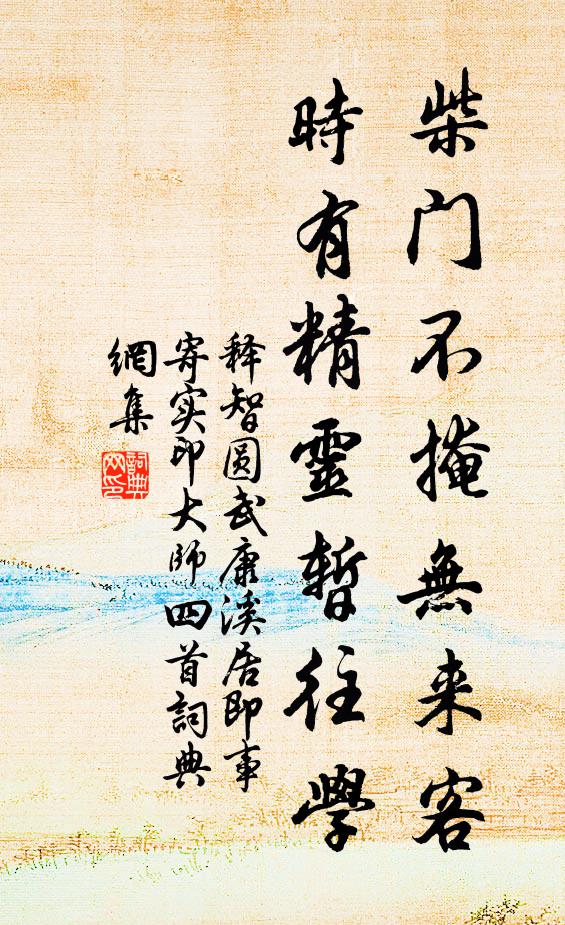 柴门不掩無来客
時有精靈暫往學
释智圆武康溪居即事
寄实印大师四首詞典
網集
詞典
网印